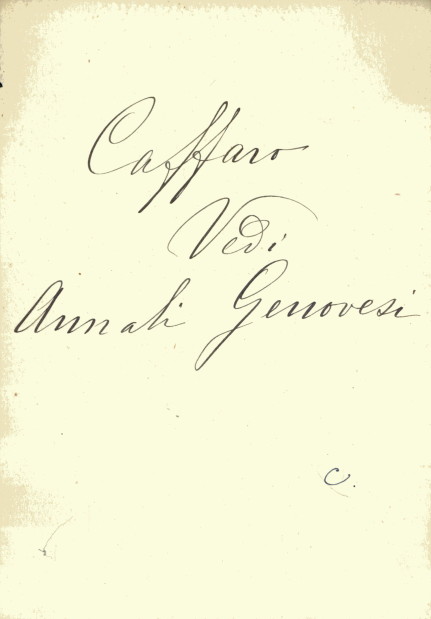 Caffaro
Vedi
Annali Genovesi
C.